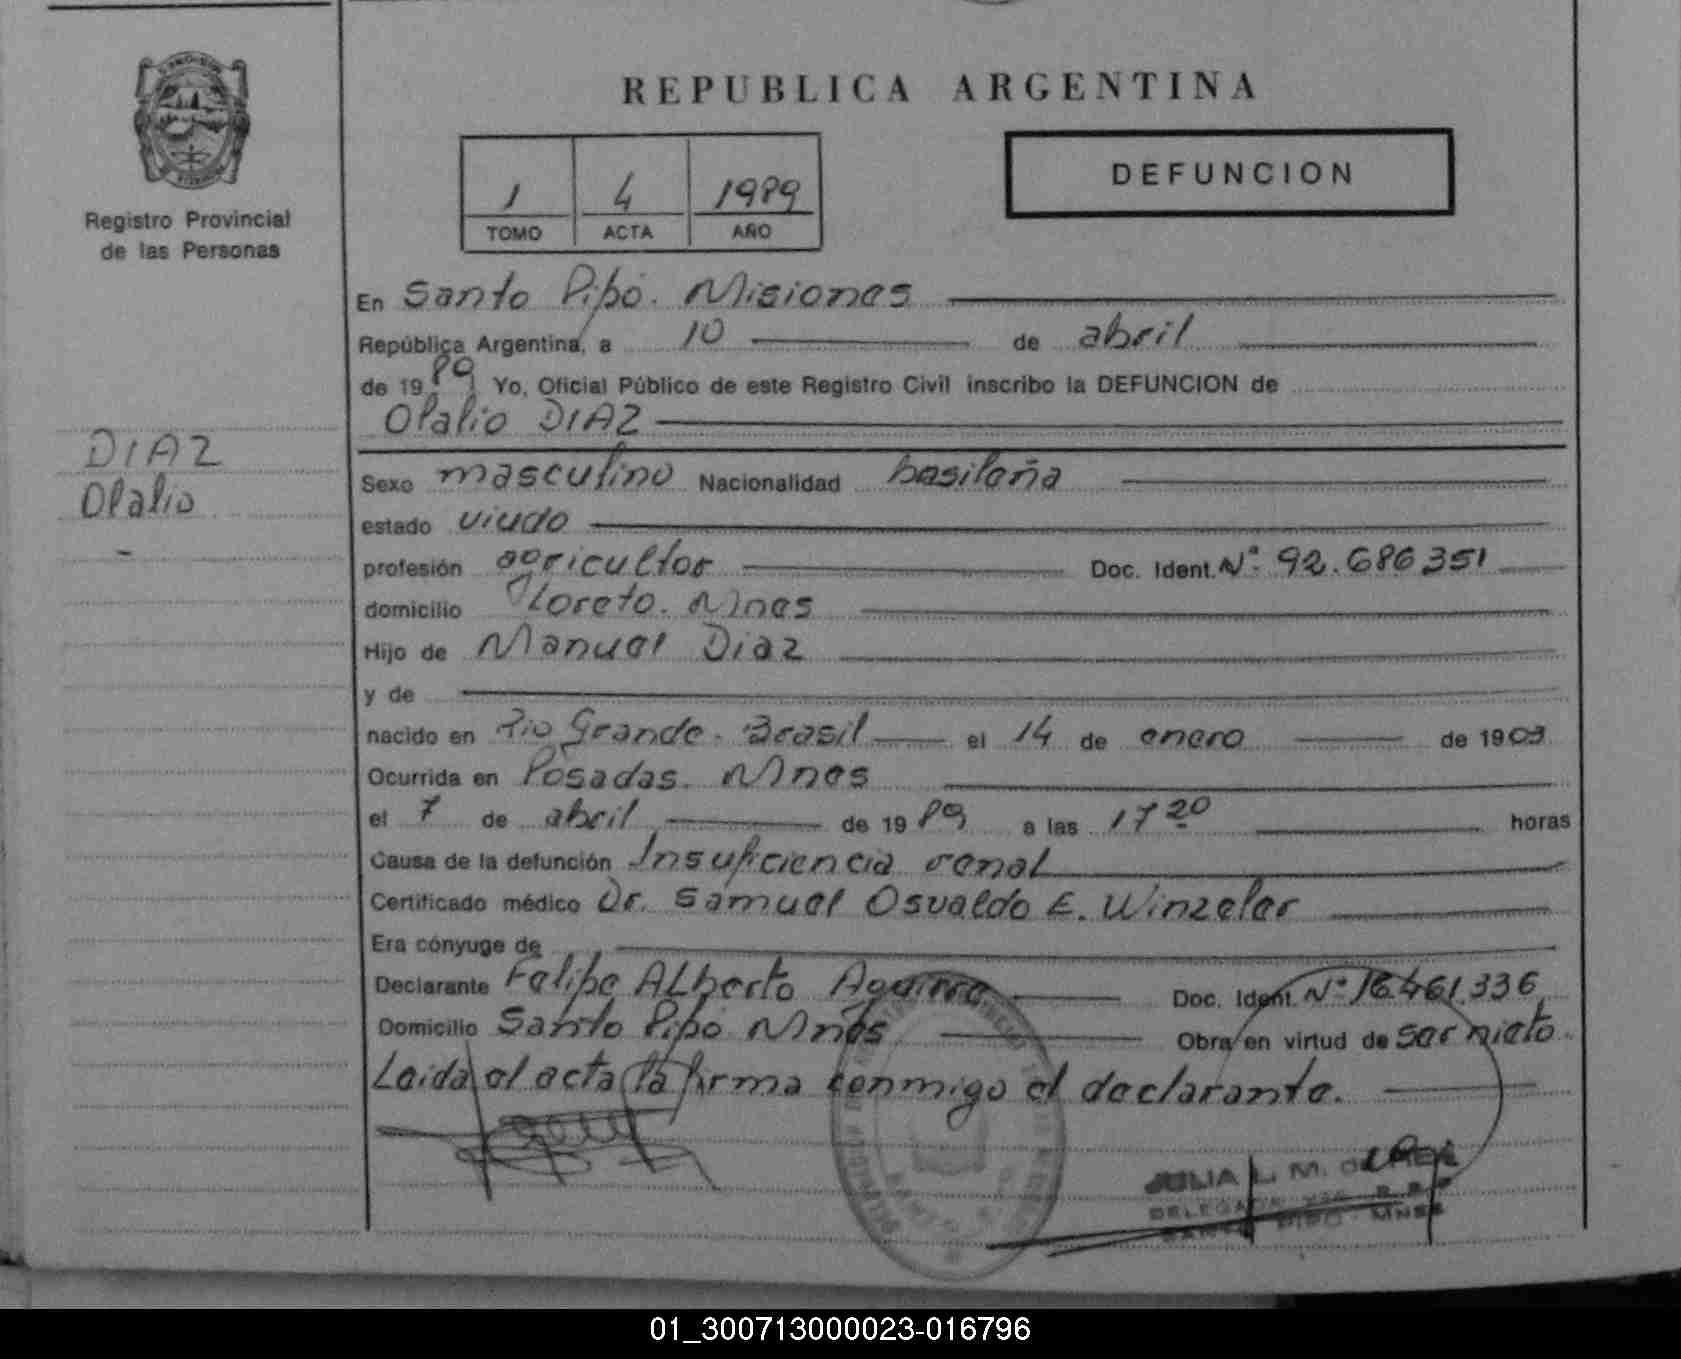 REPUBLICA ARGENTINA
Registro Provincial
de las Personas
1 4 1989
TOMO ACTA AÑO
DEFUNCION
En Santo Pipó. Misiones
República Argentina, a 10 de abril
de 1989 Yo, Oficial Público de este Registro Civil inscribo la DEFUNCION de
Olalio DIAZ
DIAZ
Olalio
Sexo masculino Nacionalidad basileña
estado viudo
profesión agricultor Doc. Ident. Nº 92.686351
domicilio Loreto. Mnes
Hijo de Manuel Diaz
y de
nacido en Rio Grande. Brasil el 14 de enero de 1903
Ocurrida en Posadas. Mnes
el 7 de abril de 1989 a las 17 20 horas
Causa de la defunción Insuficiencia renal
Certificado médico Dr. Samuel Osvaldo E. Winzeler
Era cónyuge de
Declarante Felipe ALberto Aguirre Doc. Ident. Nº 16.461.336
Domicilio Santo Pipó Mnes Obra en virtud de ser nieto.
Leida el acta la firma conmigo el declarante.
JULIA L. M. de
DELEGADA
SANTO PIPO - MNES
01_300713000023-016796